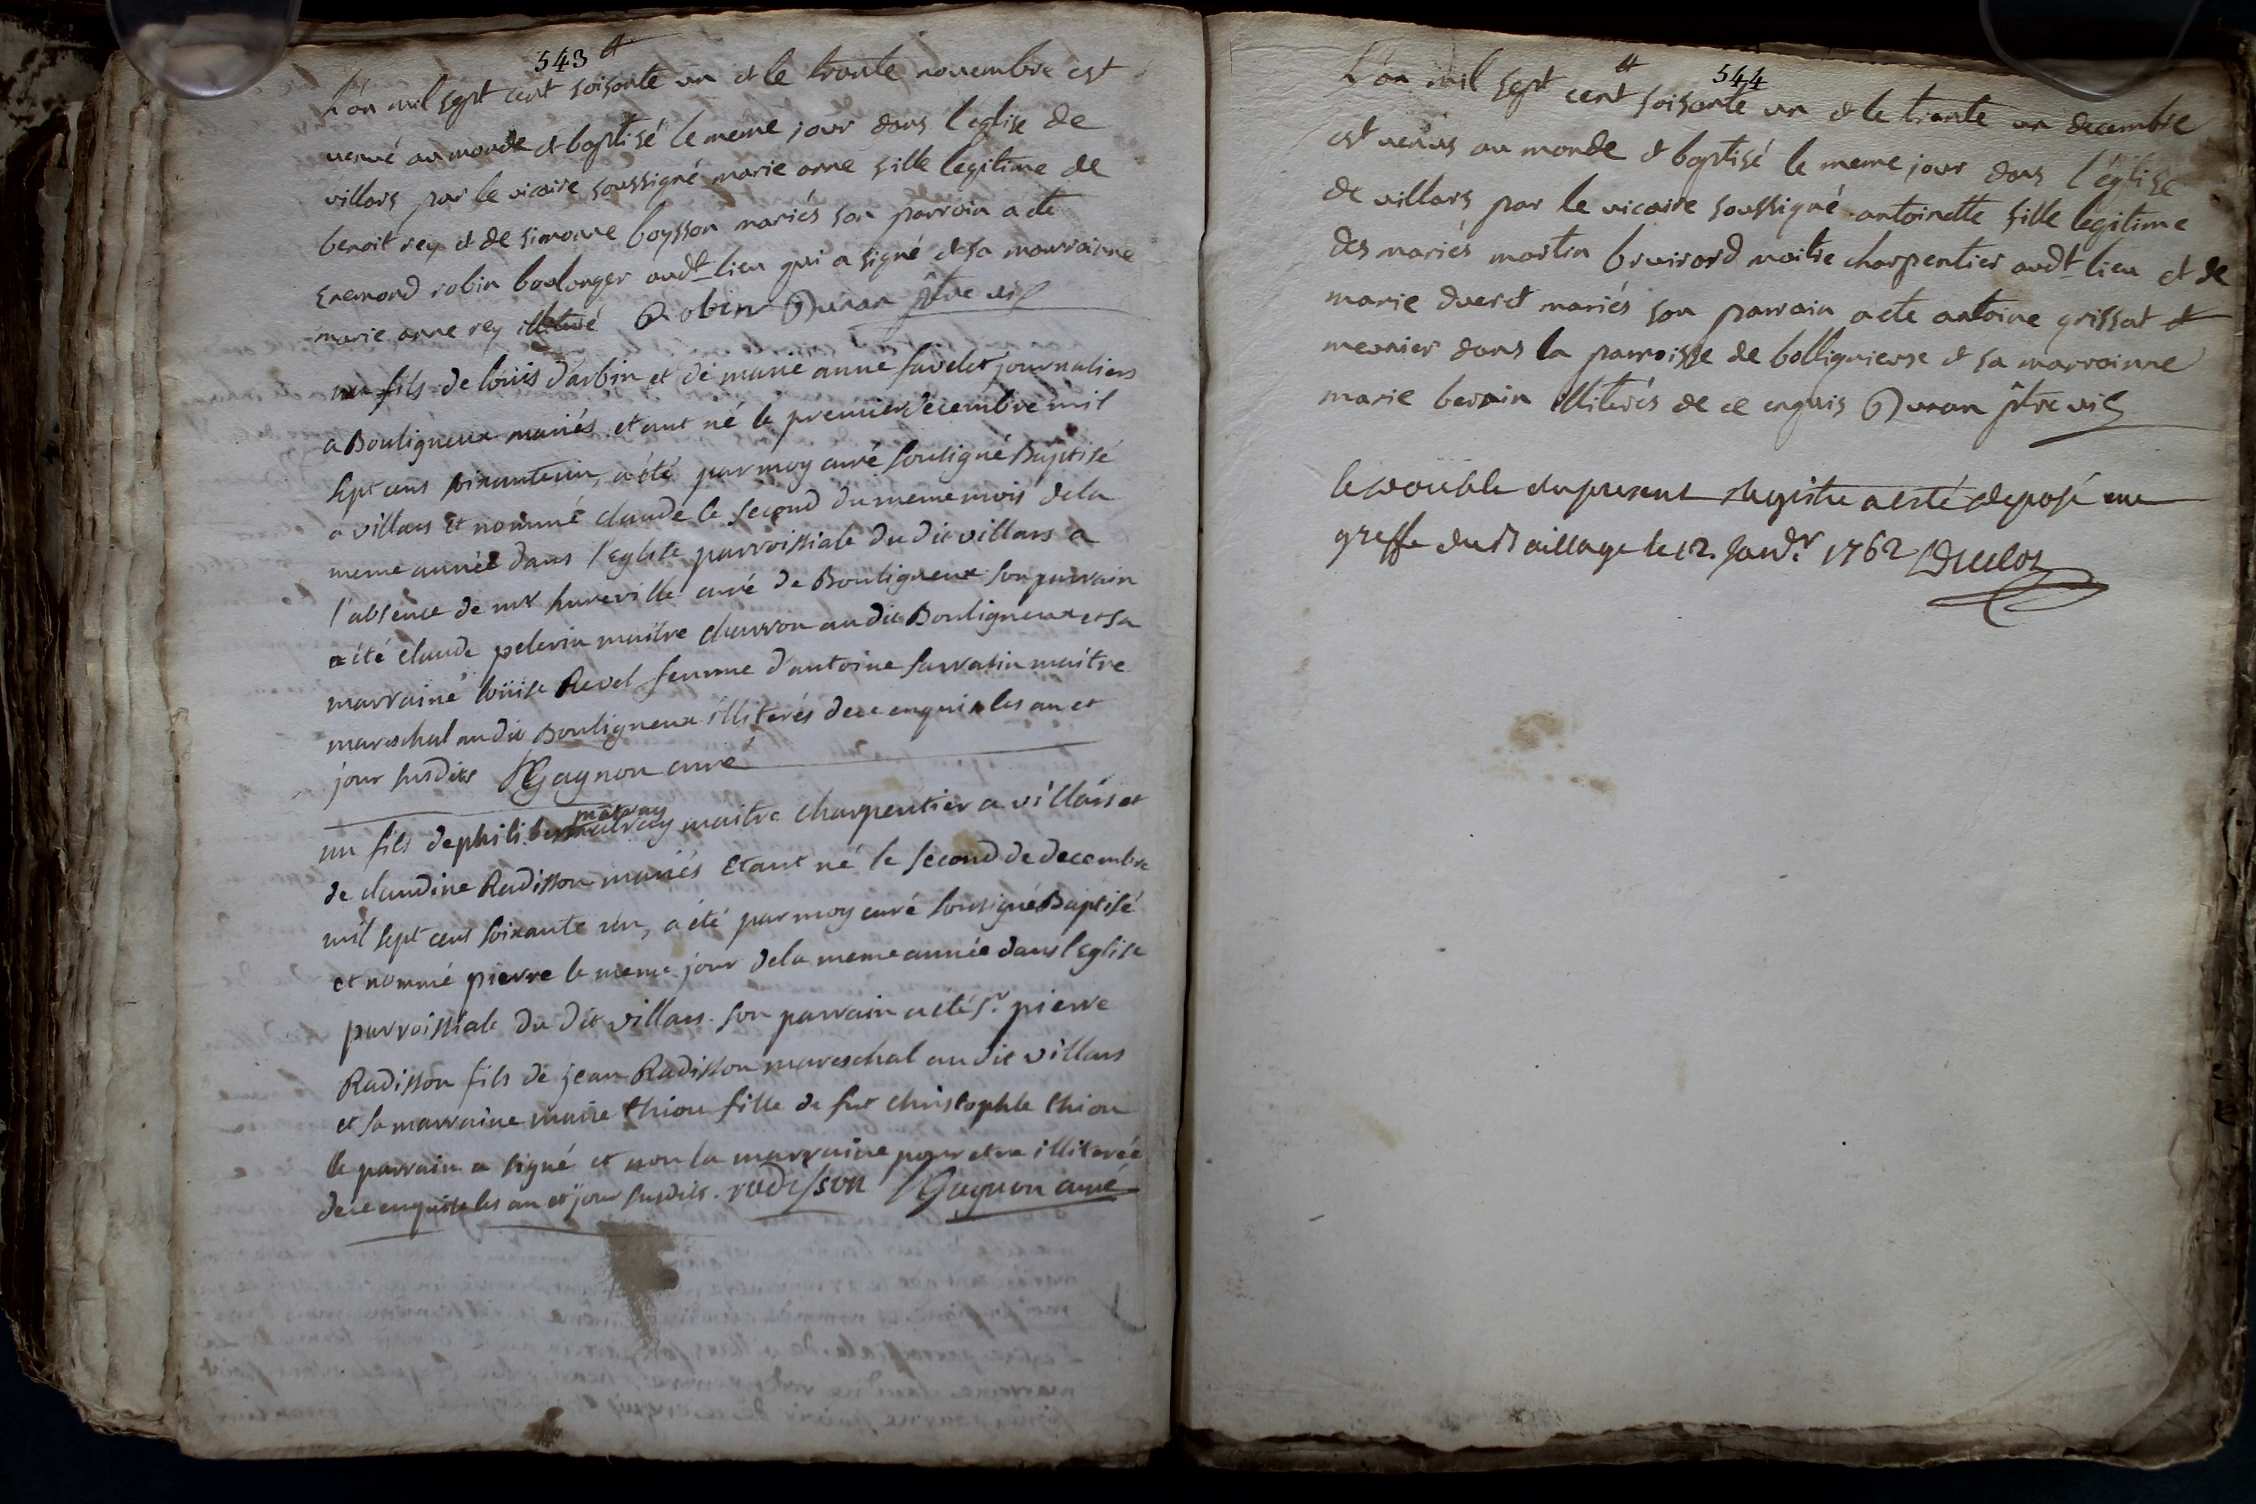 543 tt
L'an mil sept cent soisante un et le trante novembre est
venué au monde et baptisé le meme jour dans l'eglise de
villars par le vicaire soussigné marie anne fille legitime de
benoit rey et de simonne boysson mariés son parrain a eté
enemond robin boulonger audt lieu qui a signé et sa marrainne
marie anne rey illiteré Robin Duran ptre vic
un fils de loüis darbin et de marie anne favelet journaliers
a Bouligneux mariés etant né le premier decembre mil
sept cens soixante un, a été par moy curé soussigné Baptisé
a villars et nommé claude le second du meme mois de la
meme année dans l'eglise parroissiale du dit villars a
l'absence de mr hureville curé de Bouligneux son parrain
a été claude pelerin maitre charron au dit Bouligneux et sa
marraine loüise Revel femme d'antoine sarrasin maitre
mareschal au dit Bouligneux illiterés de ce enquis les an et
jour susdits Gagnon curé
matray
un fils de philibert matray maitre charpentier a villars et
de claudine Radisson mariés etant né le second de decembre
mil sept cens soixante un, a été par moy curé soussigné Baptisé
et nommé pierre le meme jour de la meme année dans l'Eglise
parroissiale du dit villars. son parrain a été sr. pierre
Radisson fils de jean Radisson mareschal au dit villars
et sa marraine marie thion fille de fut christophle thion
le parrain a signé et non la marraine pour etre illiterée
de ce enquise les an et jour susdits. radisson Gagnon curé
544
tt
L'an mil sept cent soisante un et le trante un decembre
est venus au monde et baptisé le meme jour dans l'église
de villars par le vicaire soussigné antoinette fille legitime
des mariés martin bruirard maitre charpentier audt lieu et de
marie duerd mariés son parrain a eté antoine grissat et
meunier dans la parroisse de bollignieuse et sa marrainne
marie berain illiterés de ce enquis Duran ptre vic
le double du present Registre a esté deposé au
greffe du Baillage le 12. Janvr. 1762 Duclos